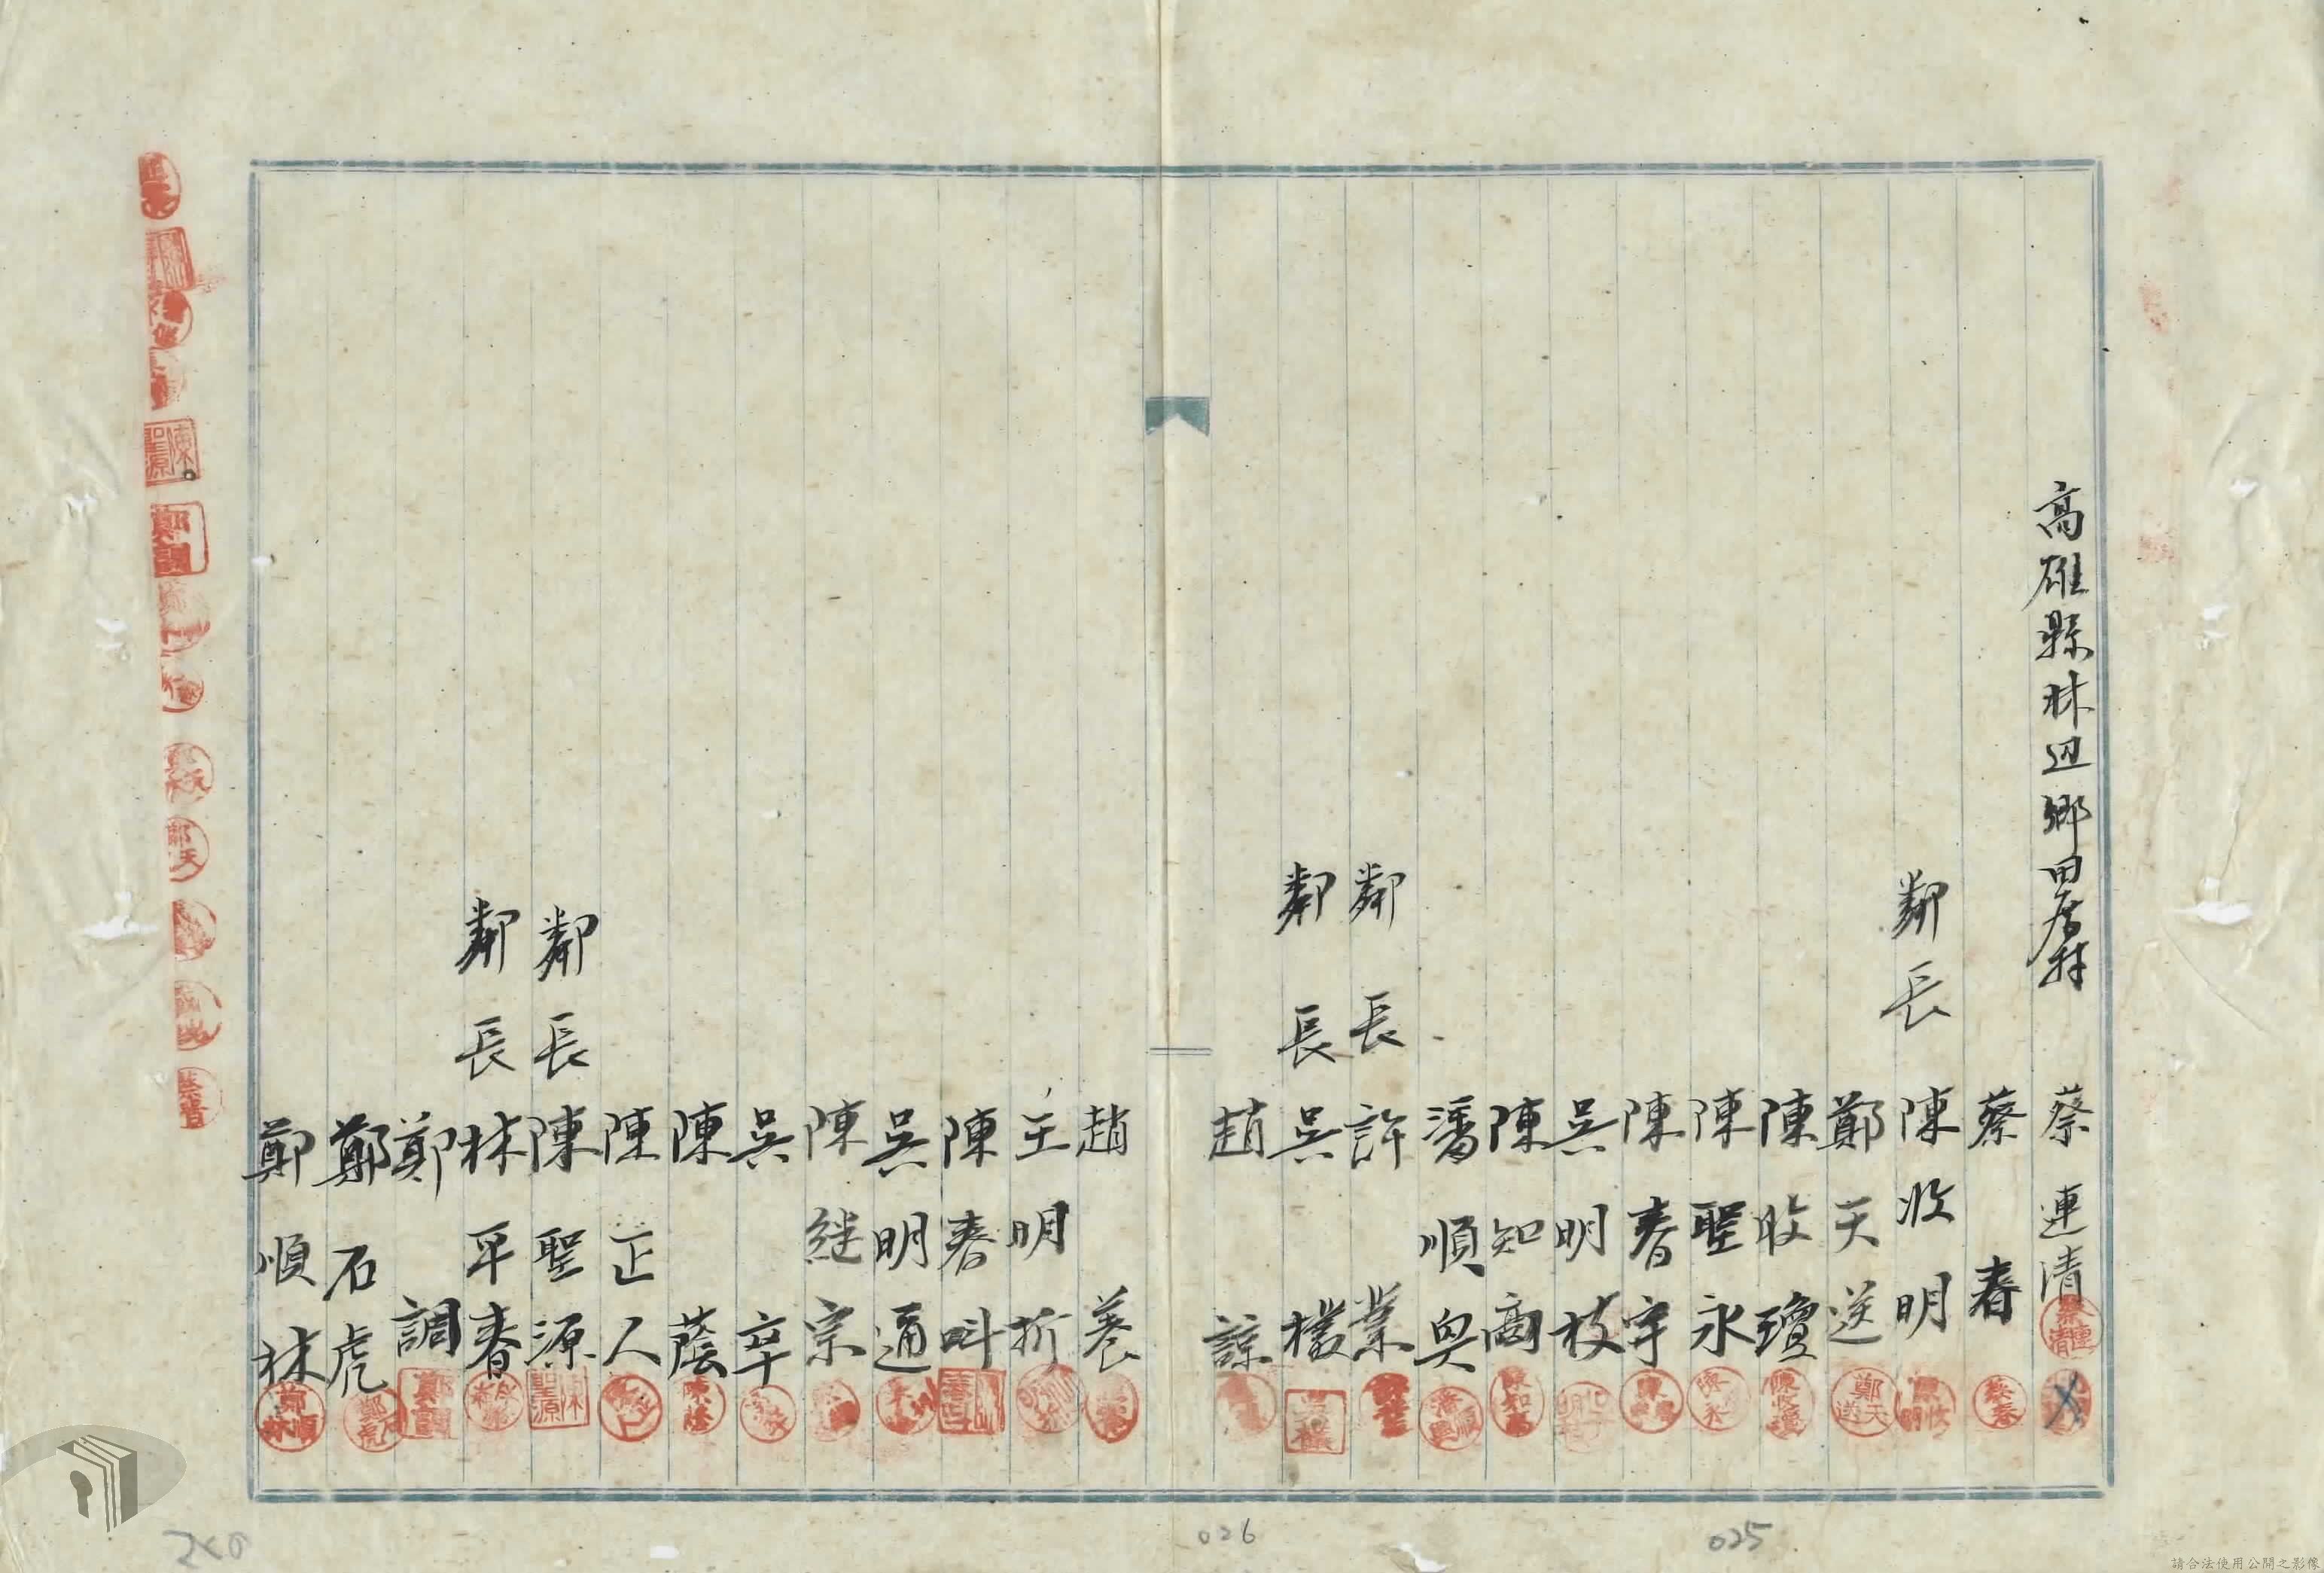 高雄縣林辺鄉田厝村 蔡連清
蔡春
鄰長 陳收明
鄭天送
陳收瓊
陳聖永
陳春宇
吳明枝
陳知高
潘順興
鄰長 許業
鄰長 吳檨
趙諒
趙養
王明折
陳春叫
吳明通
陳継宗
吳卒
陳蔭
陳正人
鄰長 陳聖源
鄰長 林平春
鄭調
鄭石虎
鄭順林
026
025
請合法使用公開之影像